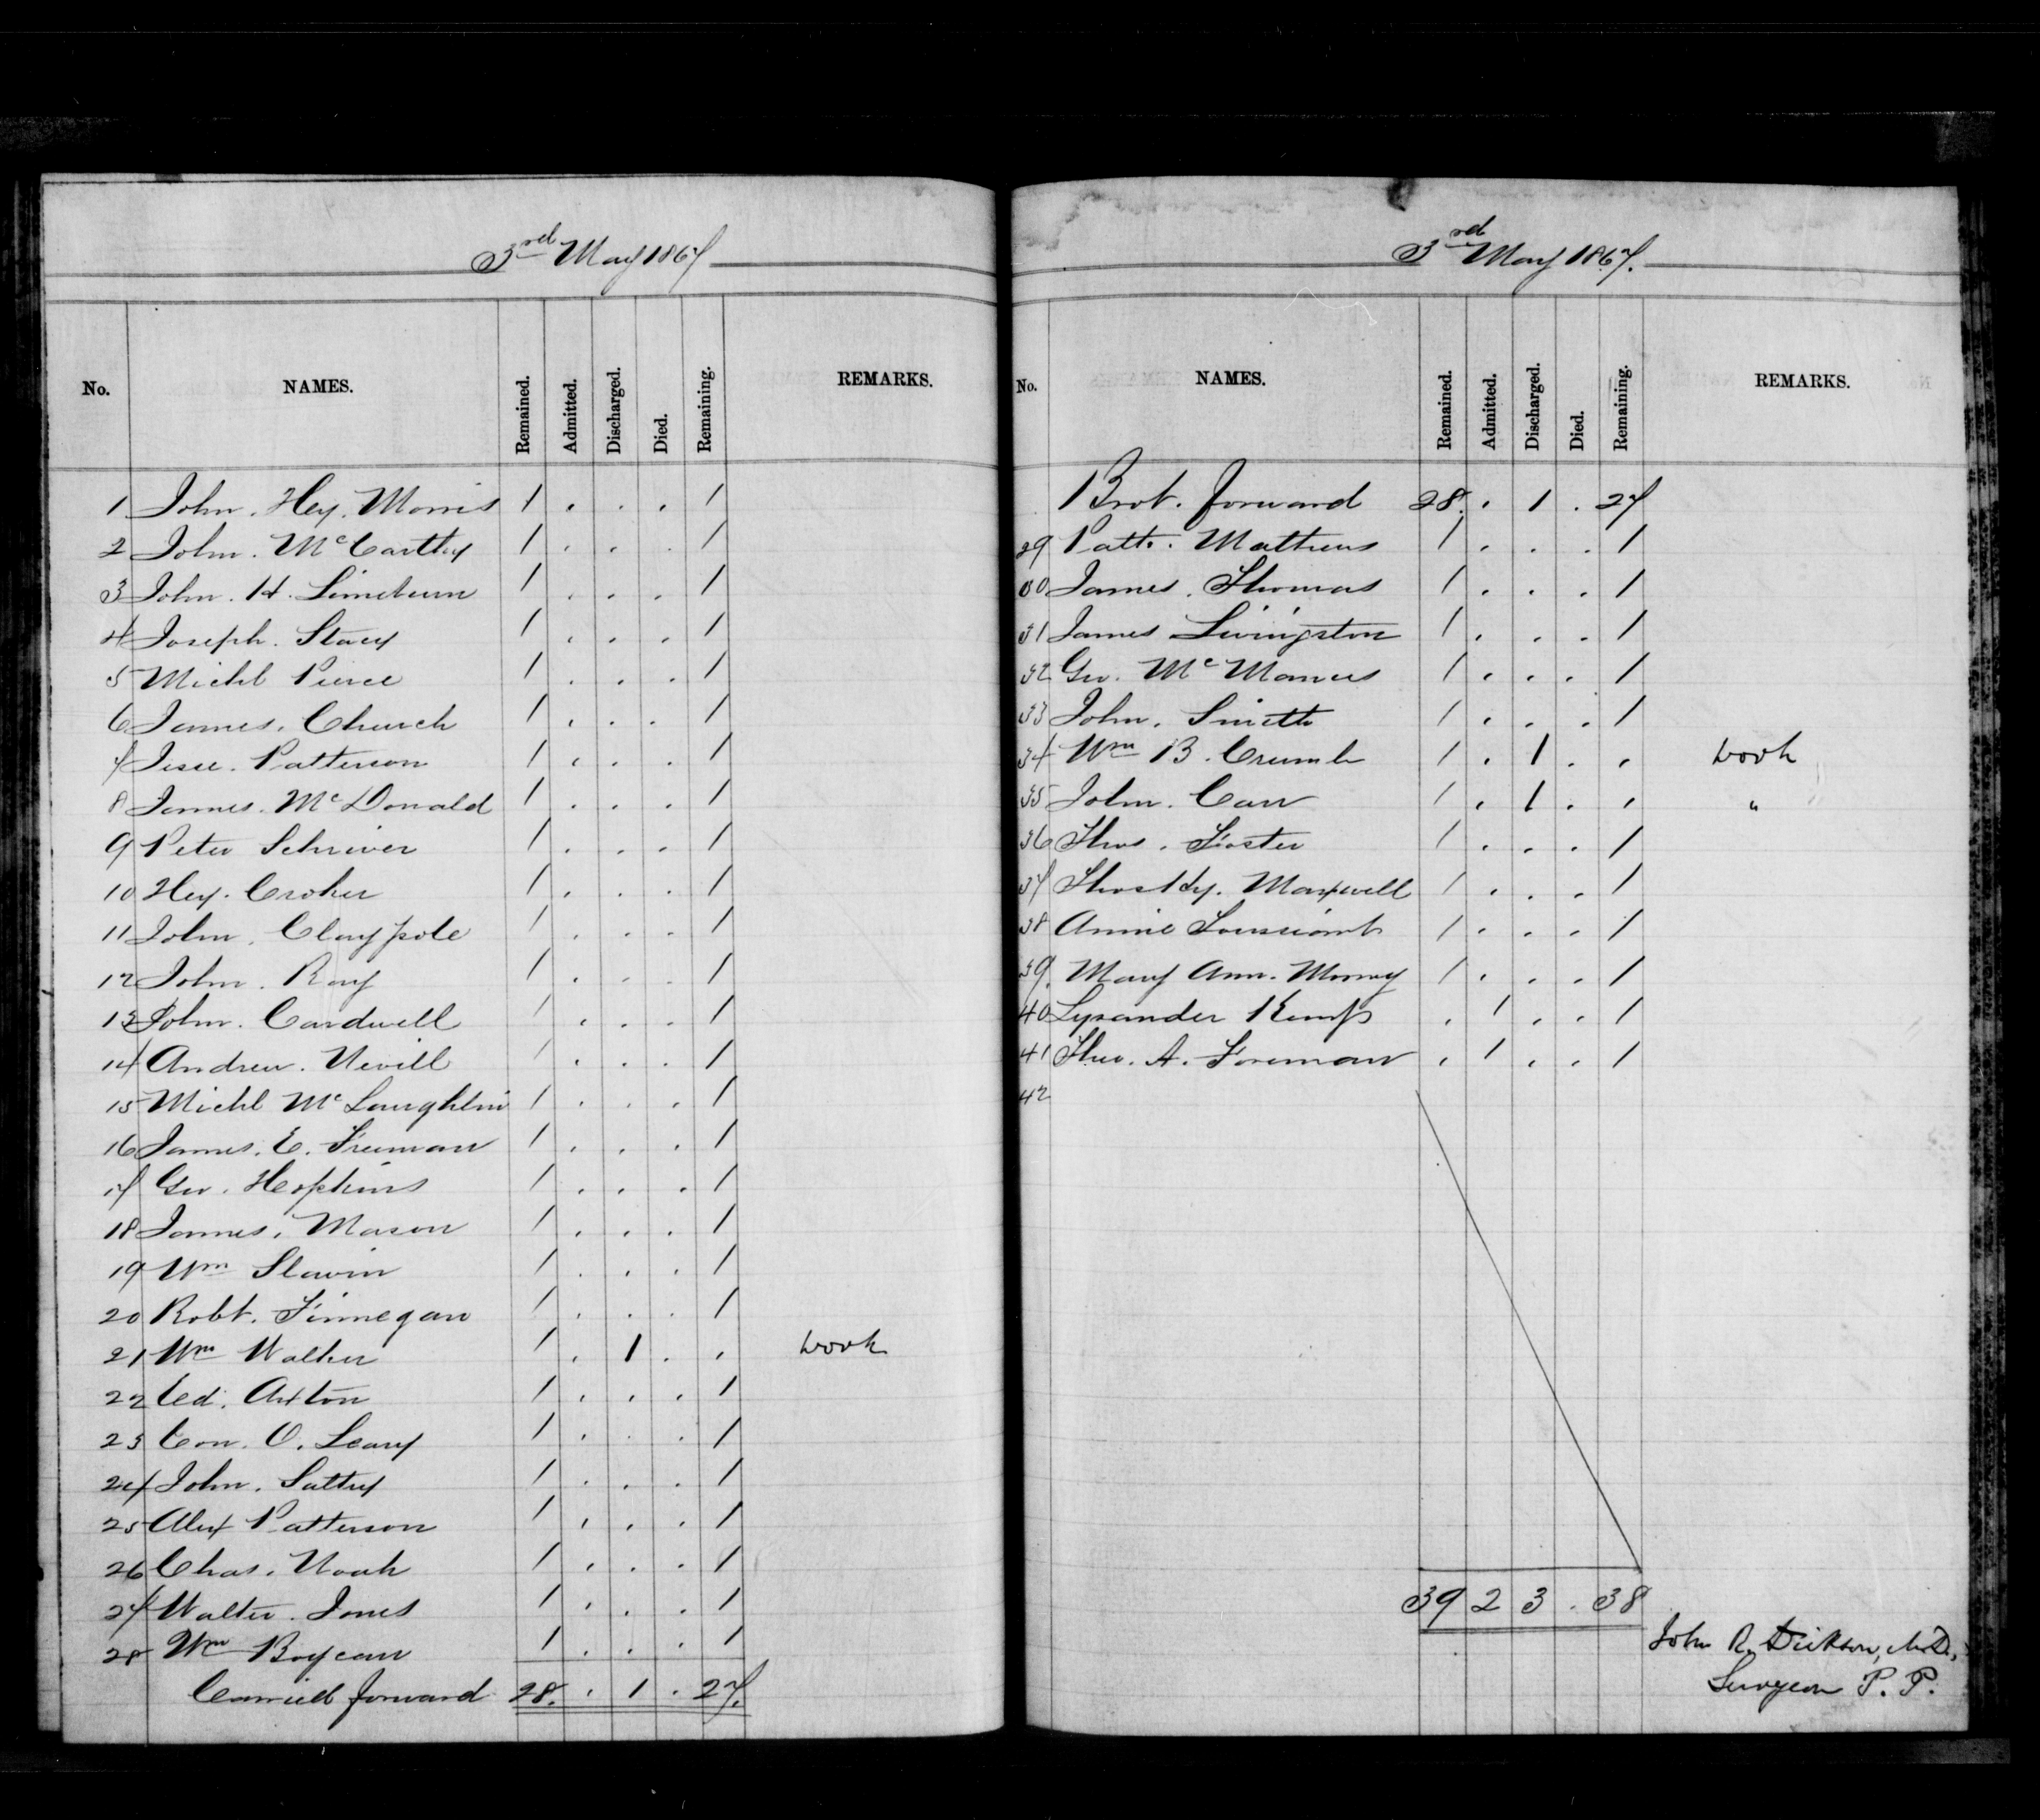 3rd May 1867
No. NAMES. Remained. Admitted. Discharged. Died. Remaining. REMARKS.
1 John. Hey. Morris 1 . . . 1
2 John. McCarthy 1 . . . 1
3 John. H. Limeburn 1 . . . 1
4 Joseph. Stacy 1 . . . 1
5 Michl Pierce 1 . . . 1
6 James. Church 1 . . . 1
7 Jesse. Patterson 1 . . . 1
8 James. McDonald 1 . . . 1
9 Peter Schriver 1 . . . 1
10 Hey. Croker 1 . . . 1
11 John. Claypole 1 . . . 1
12 John. Ray 1 . . . 1
13 John. Cardwell 1 . . . 1
14 Andrew. Nevill 1 . . . 1
15 Michl McLaughlin 1 . . . 1
16 James. E. Freeman 1 . . . 1
17 Geo. Hopkins 1 . . . 1
18 James. Mason 1 . . . 1
19 Wm Slavin 1 . . . 1
20 Robt. Finnegan 1 . . . 1
21 Wm Walker 1 . 1 . . work
22 Ed. Axton 1 . . . 1
23 Con. O. Leary 1 . . . 1
24 John. Sattry 1 . . . 1
25 Alex Patterson 1 . . . 1
26 Chas. Noah 1 . . . 1
27 Walter. Jones 1 . . . 1
28 Wm Boycan 1 . . . 1
Carried forward 28. . 1 . 27.
3rd May 1867.
No. NAMES. Remained. Admitted. Discharged. Died. Remaining. REMARKS.
Brot. forward 28. . 1 . 27
29 Patk. Mathews 1 . . . 1
30 James. Thomas 1 . . . 1
31 James Livingston 1 . . . 1
32 Geo. McManus 1 . . . 1
33 John. Smith 1 . . . 1
34 Wm B. Crumb 1 . 1 . . work
35 John. Carr 1 . 1 . . "
36 Thos. Foster 1 . . . 1
37 Thos Hy. Maxwell 1 . . . 1
38 Annie 1 . . . 1
39. Mary Ann. Murray 1 . . . 1
40 Lysander Kemp . 1 . . 1
41 Theo. A. Foreman . 1 . . 1
42
39 2 3 . 38
John R. Dickson, M.D.,
Surgeon P. P.